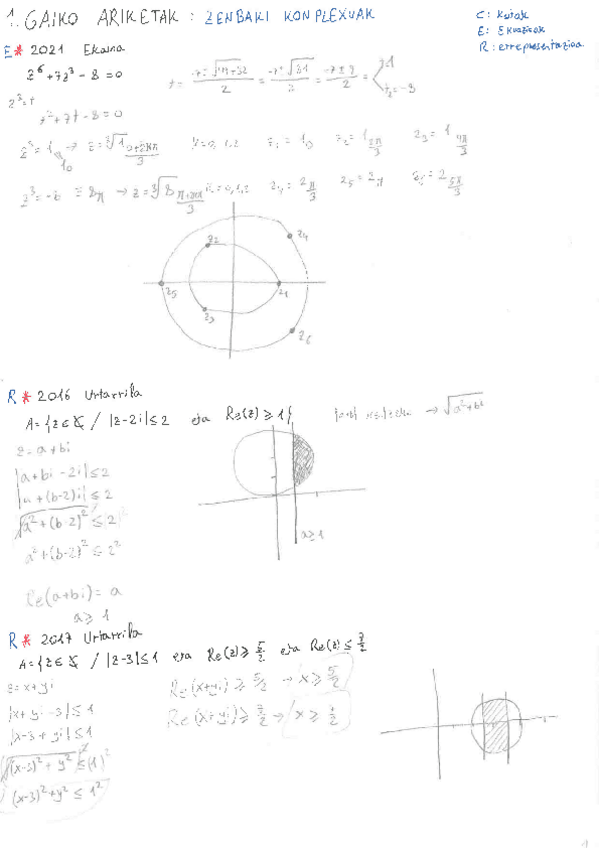 1. GAIKO ARIKETAK : ZENBAKI KONPLEXUAK
C: Kutak
E: Ekuazioak
R: errepresentazioa
E * 2021 Ekaina
z⁶+7z³-8=0
z³=t
t²+7t-8=0
t= -7±√(49+32)/2 = -7±√81/2 = -7±9/2 =
z³=1 → z=∛1 0+2πk/3 k=0,1,2 z₁=1₀ z₂=1 2π/3 z₃=1 4π/3
1₀
z³=-8 = 8π → z=∛8 π+2πk/3 k=0,1,2 z₄=2 π/3 z₅=2π z₆=2 5π/3
z₂ z₄
z₅ z₁
z₃ z₆
R * 2016 Urtarrila
A={z∈ℂ / |z-2i|≤2 eta Re(z)≥1} → √(a²+b²)
z=a+bi
|a+bi-2i|≤2
|a+(b-2)i|≤2
√(a²+(b-2)²)² ≤2²
a²+(b-2)²≤2²
a≥1
Re(a+bi)=a
a≥1
R * 2017 Urtarrila
A={z∈ℂ / |z-3|≤1 eta Re(z)≥5/2 eta Re(z)≤7/2
z=x+yi
Re(x+yi)≥5/2 → x≥5/2
|x+yi-3|≤1
Re(x+yi)≥7/2 → x≥7/2
|x-3+yi|≤1
√((x-3)²+y²)² ≤(1)²
(x-3)²+y²≤1²
1